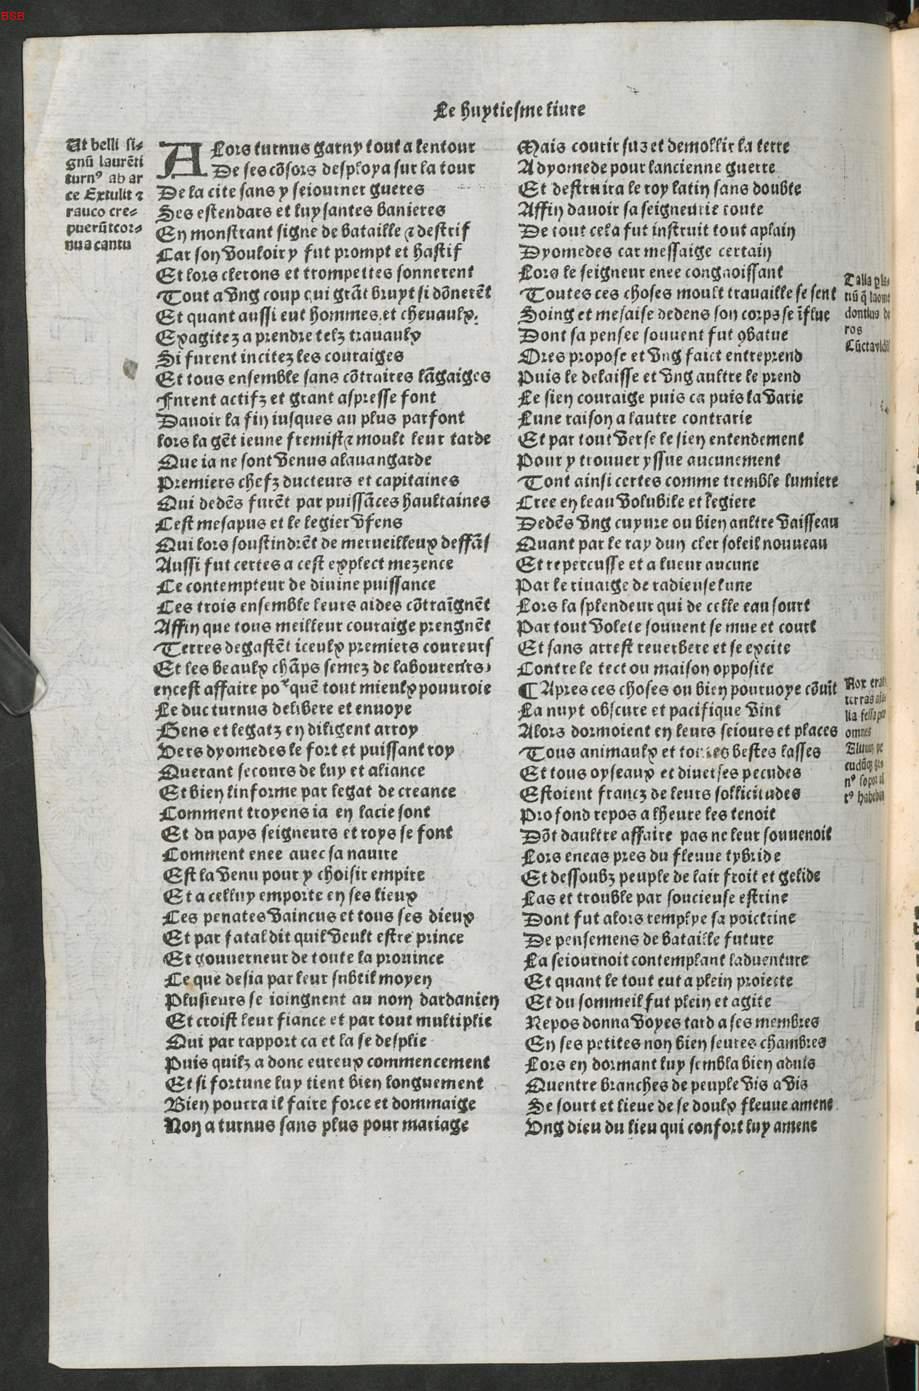 BSB
Le huytiesme liure
Ut belli si-
gnũ laurẽti
turnꝰ ab ar
ce Extulit ⁊
rauco cre-
puerũt cor-
nua cantu
ALors turnus garny tout a lentour
De ses cõsors desploya sur la tour
De la cite sans y seiourner gueres
Ses estendars et luysantes banieres
En monstrant signe de bataille ⁊ destrif
Car son vouloir y fut prompt et hastif
Et lors clerons et trompettes sonnerent
Tout a vng coup qui grãt bruyt si dõnerẽt
Et quant aussi eut hommes. et cheuaulx.
Exagitez a prendre telz trauaulx
Si furent incitez les couraiges
Et tous ensemble sans cõtraires lãgaiges
Furent actifz et grant aspresse font
Dauoir la fin iusques au plus parfont
lors la gẽt ieune fremist⁊ moult leur tarde
Que ia ne sont venus alauangarde
Premiers chefz ducteurs et capitaines
Qui dedẽs furẽt par puissãces haultaines
Cest mesapus et le legier vfens
Qui lors soustindrẽt de merueilleux deffãs
Aussi fut certes a cest explect mezence
Le contempteur de diuine puissance
Ces trois ensemble leurs aides cõtraĩgnẽt
Affin que tous meilleur couraige prengnẽt
Terres degastẽt iceulx premiers coureurs
Et les beaulx chãps semez de laboureurs,
encest affaire poʳ quẽ tout mieulx pouuroie
Le duc turnus delibere et enuoye
Gens et legatz en diligent arroy
Vers dyomedes le fort et puissant roy
Querant secours de luy et aliance
Et bien linforme par legat de creance
Comment troyens ia en lacie sont
Et du pays seigneurs et roys se font
Comment enee auec sa nauire
Est la venu pour y choisir empire
Et a celluy emporte en ses lieux
Les penates vaincus et tous ses dieux
Et par fatal dit quil veult estre prince
Et gouuerneur de toute la prouince
Ce que desia par leur subtil moyen
Plusieurs se ioingnent au nom dardanien
Et croist leur fiance et par tout multiplie
Qui par rapport ca et la se desplie
Puis quilz a donc eureux commencement
Et si fortune luy tient bien longuement
Bien pourra il faire force et dommaige
Non a turnus sans plus pour mariage
Mais courir suz et demollir la terre
A dyomede pour lancienne guerre
Et destruira le roy latin sans doubte
Affin dauoir sa seigneurie toute
De tout cela fut instruit tout aplain
Dyomedes car messaige certain
Lors le seigneur enee congnoissant
Toutes ces choses moult trauaille se sent
Soing et mesaise dedens son corps se ĩflue
Dont sa pensee souuent fut ꝯbatue
Ores propose et vng faict entreprend
Puis le delaisse et vng aultre le prend
Le sien couraige puis ca puis la varie
Lune raison a lautre contrarie
Et par tout verse le sien entendement
Pour y trouuer yssue aucunement
Tont ainsi certes comme tremble lumiere
Cree en leau volubile et legiere
Dedẽs vng cuyure ou bien aultre vaisseau
Quant par le ray dun cler soleil nouueau
Et repercusse et a lueur aucune
Par le riuaige de radieuse lune
Lors la splendeur qui de celle eau sourt
Par tout volete souuent se mue et court
Et sans arrest reuerbere et se excite
Contre le tect ou maison opposite
¶ Apres ces choses ou bien pouruoye cõuĩt
La nuyt obscure et pacifique vint
Alors dormoient en leurs seiours et places
Tous animaulx et toutes bestes lasses
Et tous oyseaux et diuerses pecudes
Estoient francz de leurs sollicitudes
Profond repos a lheure les tenoit
Dõt daultre affaire pas ne leur souuenoit
Lors eneas pres du fleuue tybride
Et dessoubz peuple de lair froit et gelide
Las et trouble par soucieuse estrine
Dont fut alors remplye sa poictrine
De pensemens de bataille future
La seiournoit contemplant laduenture
Et quant le tout eut a plein proiecte
Et du sommeil fut plein et agite
Repos donna voyes tard a ses membres
En ses petites non bien seures chambres
Lors en dormant luy sembla bien aduis
Quentre branches de peuple vis a vis
Se sourt et lieue de se doulx fleuue amene
Vng dieu du lieu qui confort luy amene
Talia
laome
dontius
ros
Cũcta
Nox erat
terras
lia fessa
omnes